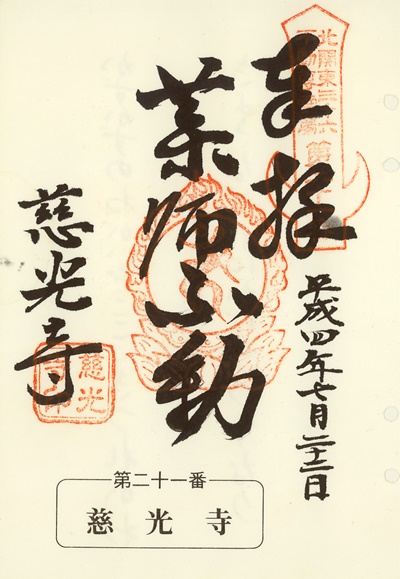 奉拝
平成四年七月二十二日
薬師不動
慈光寺
北関東三十六
慈光
第二十一番
慈光寺